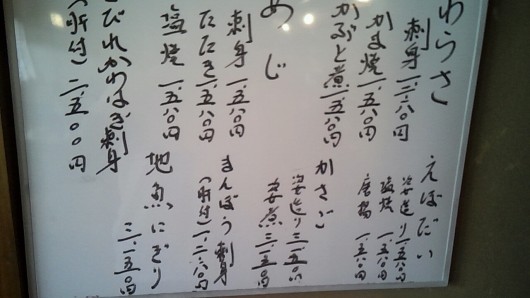 わらさ
刺身 一、二八〇円
かま焼 一、五八〇円
かぶと煮 一、五八〇円
めじ
刺身 一、五八〇円
たたき 一、五八〇円
塩焼 一、五八〇円
うすばかわはぎ刺身
(肝付) 二、五〇〇円
えぼだい
姿造り 一、五八〇円
塩焼 一、五八〇円
唐揚 一、五八〇円
かさご
姿造り 三、一五〇円
姿煮 三、一五〇円
まんぼう刺身
(肝付) 一、二八〇円
地魚にぎり
三、一五〇円